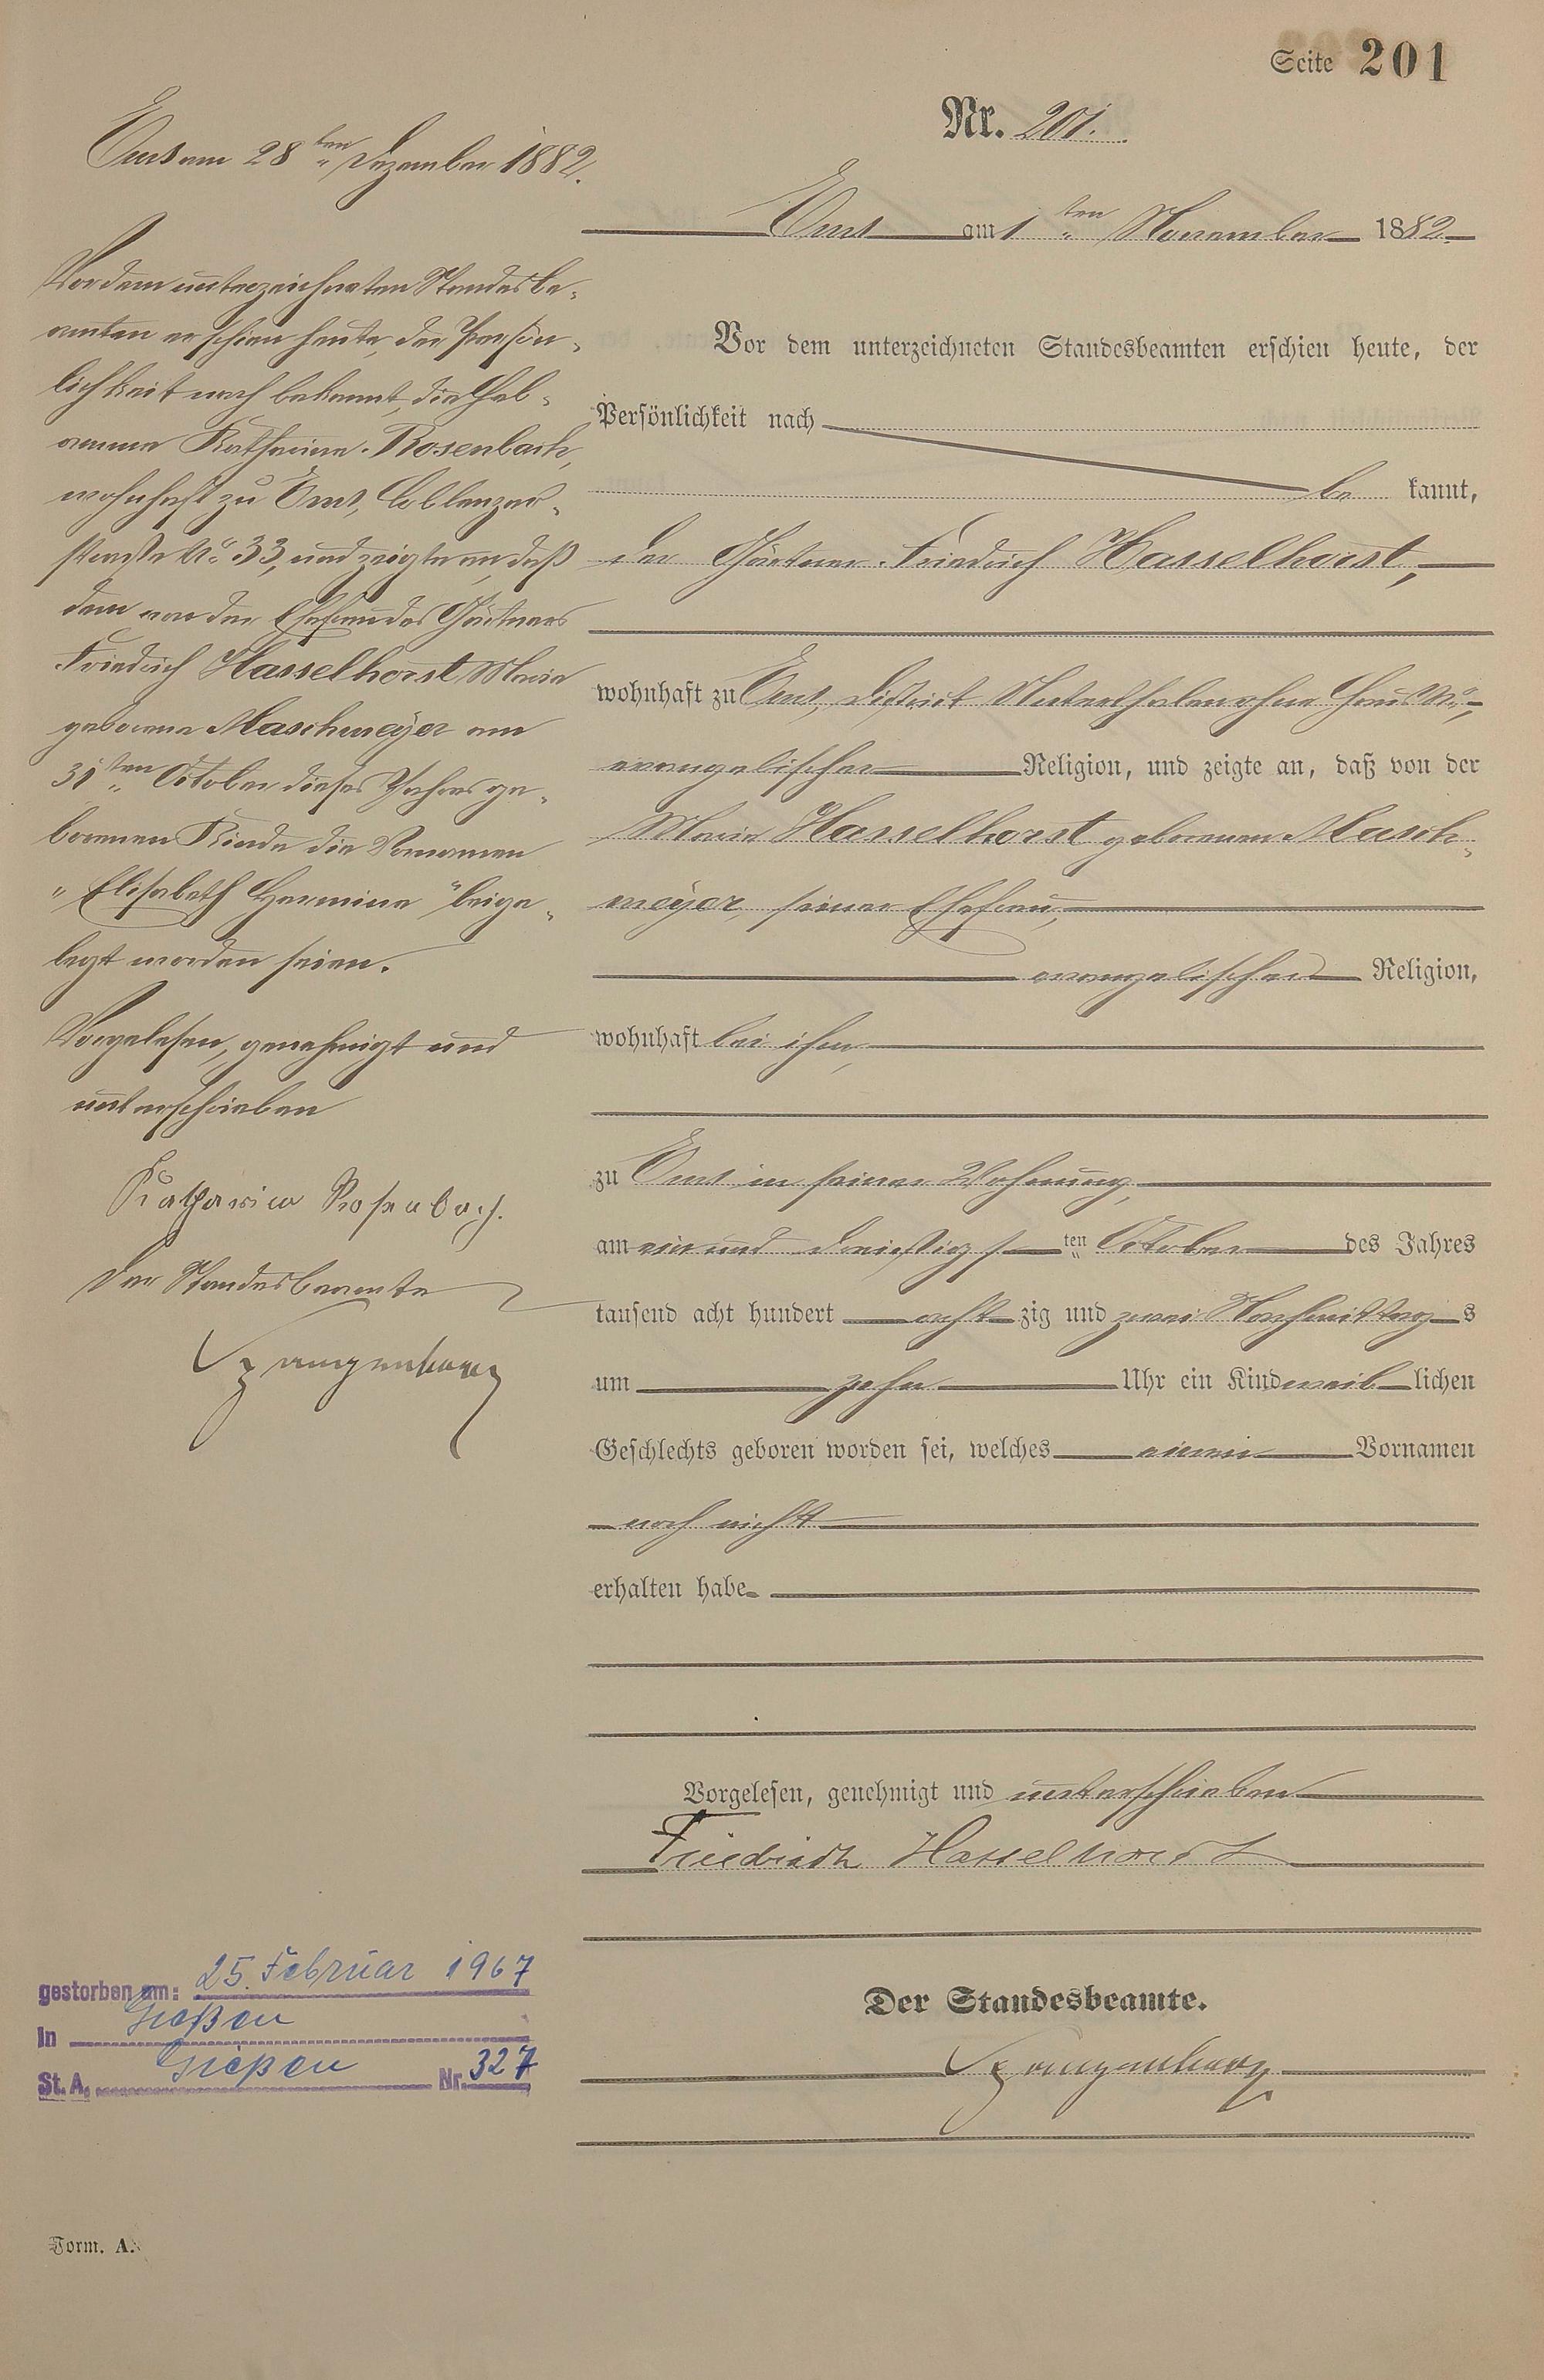 Seite 201
Nr. 201.
Ems am 1ten November 1882.
Vor dem unterzeichneten Standesbeamten erschien heute, der
Persönlichkeit nach
be kannt,
der Gärtner Friedrich Hasselhorst,
wohnhaft zu Ems, District ohne Haus No,
evangelischer Religion, und zeigte an, daß von der
Marie Hasselhorst geborenen Masch-
meyer, seiner Ehefrau,
evangelischer Religion,
wohnhaft bei ihm,
zu Ems in seiner Wohnung,
am ein und dreißigsten October des Jahres
tausend acht hundert acht zig und zwei Nachmittags
um zehn Uhr ein Kind weiblichen
Geschlechts geboren worden sei, welches einen Vornamen
noch nicht
erhalten habe.
Vorgelesen, genehmigt und unterschrieben
Friedrich Hasselhorst
Der Standesbeamte.
Ems am 28ten Dezember 1882.
Vor dem unterzeichneten Standesbe-
amten erschien heute, der Persön-
lichkeit nach bekannt, die Heb-
amme Katharina Rosenbach,
wohnhaft zu Ems, Coblenzer-
straße No 33, und zeigte an, daß
dem von der Ehefrau des Gärtners
Friedrich Hasselhorst Marie
geborene Maschmeyer am
31ten October dieses Jahres ge-
borenen Kinde die Vornamen
"Elisabeth Hermine" beige-
legt worden seien.
Vorgelesen, genehmigt und
unterschrieben
Katharina Rosenbach.
Der Standesbeamte
gestorben am: 25. Februar 1967
in Gießen
St. A. Gießen Nr. 327
Form. A.